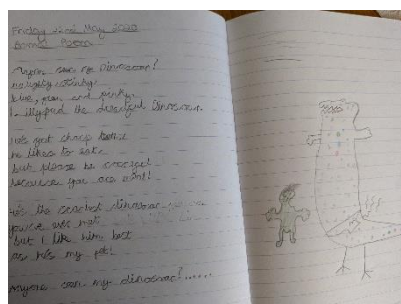 Friday 22nd May 2020
Poem
seen my Dinosaur?
naughty
blue, green and pinky.
the Dinosaur.
He's got sharp teeth
he likes to eat
but please be careful
because you are meat!
He's the scariest dinosaur
you've met
but I like him best
as he's my pet!
Anyone seen my dinosaur?......